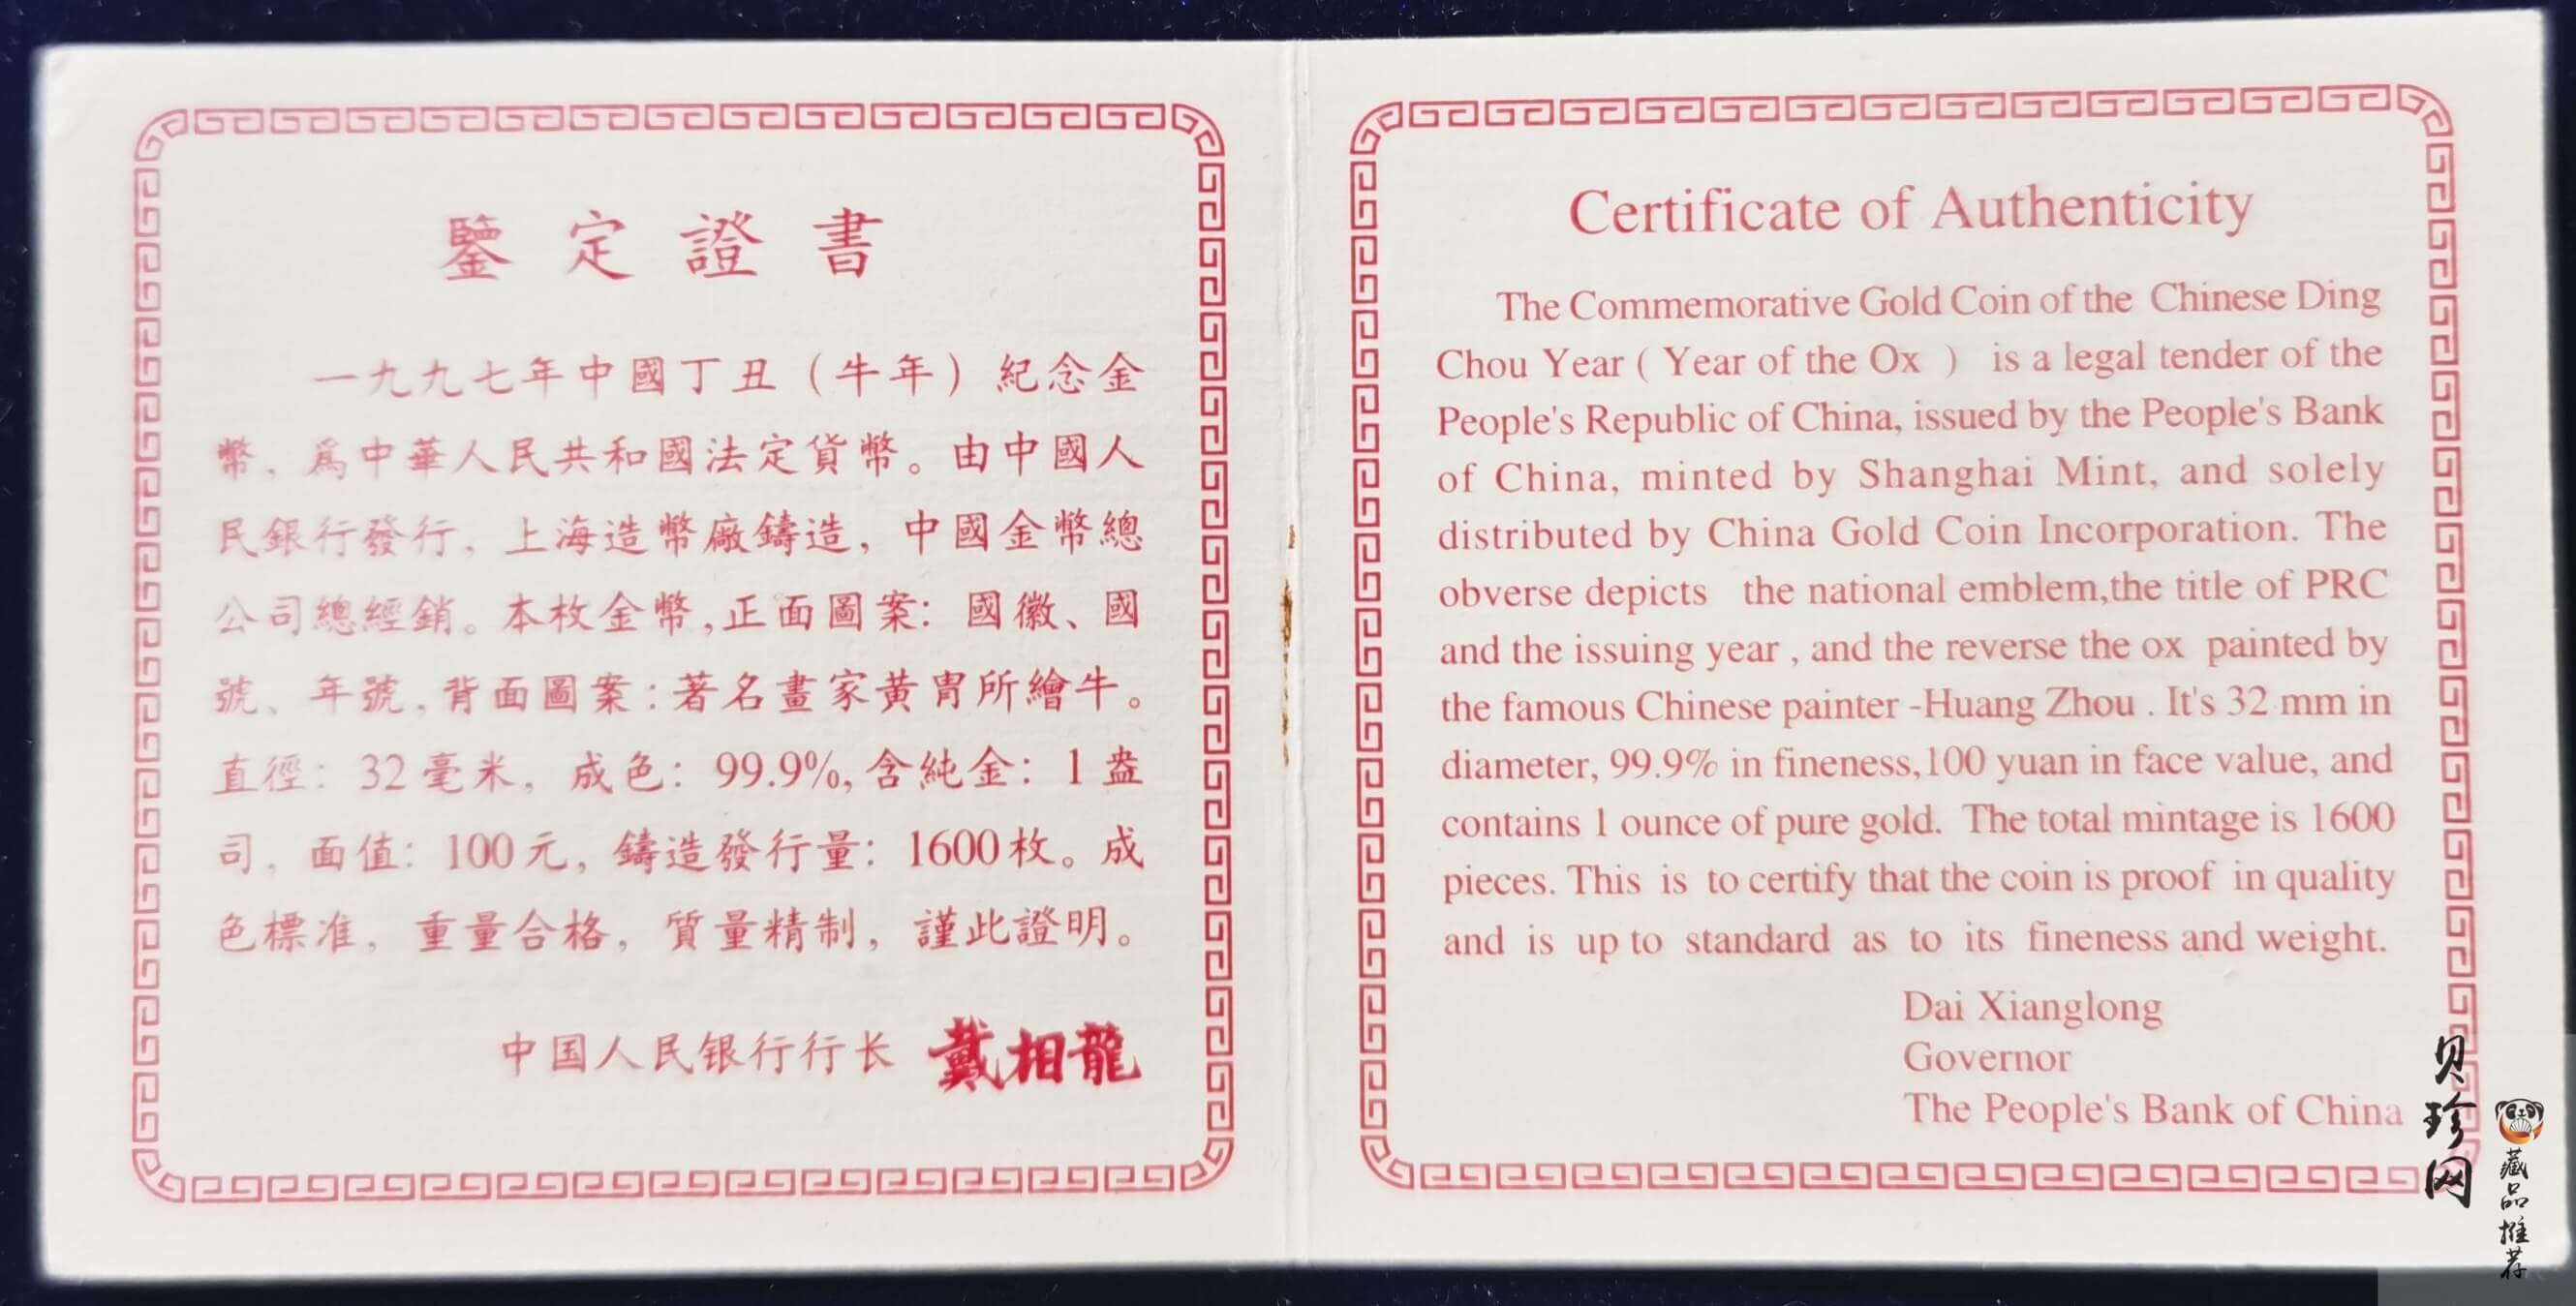 鑒定證書
一九九七年中國丁丑（牛年）紀念金
幣，爲中華人民共和國法定貨幣。由中國人
民銀行發行，上海造幣廠鑄造，中國金幣總
公司總經銷。本枚金幣,正面圖案：國徽、國
號、年號,背面圖案：著名畫家黃胄所繪牛。
直徑：32毫米，成色：99.9%,含純金：1盎
司，面值：100元，鑄造發行量：1600枚。成
色標准，重量合格，質量精制，謹此證明。
中国人民银行行长 戴相龍
Certificate of Authenticity
The Commemorative Gold Coin of the Chinese Ding
Chou Year ( Year of the Ox ) is a legal tender of the
People's Republic of China, issued by the People's Bank
of China, minted by Shanghai Mint, and solely
distributed by China Gold Coin Incorporation. The
obverse depicts the national emblem,the title of PRC
and the issuing year , and the reverse the ox painted by
the famous Chinese painter -Huang Zhou . It's 32 mm in
diameter, 99.9% in fineness,100 yuan in face value, and
contains 1 ounce of pure gold. The total mintage is 1600
pieces. This is to certify that the coin is proof in quality
and is up to standard as to its fineness and weight.
Dai Xianglong
Governor
The People's Bank of China
贝珍网
藏品推荐